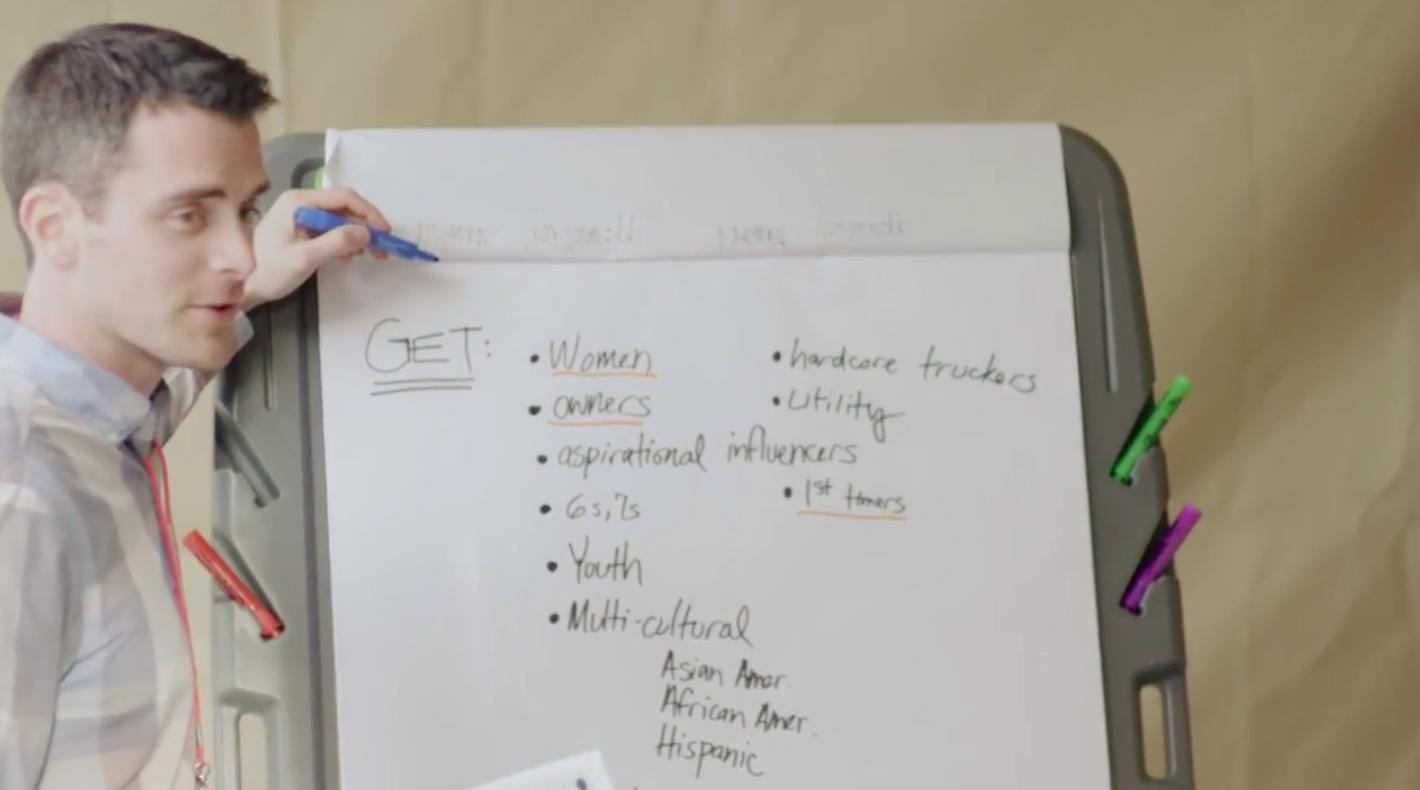 GET:
• Women
• owners
• aspirational influencers
• 6s, 7s
• Youth
• Multi-cultural
Asian Amer.
African Amer.
Hispanic
• hardcore truckers
• Utility
• 1st timers